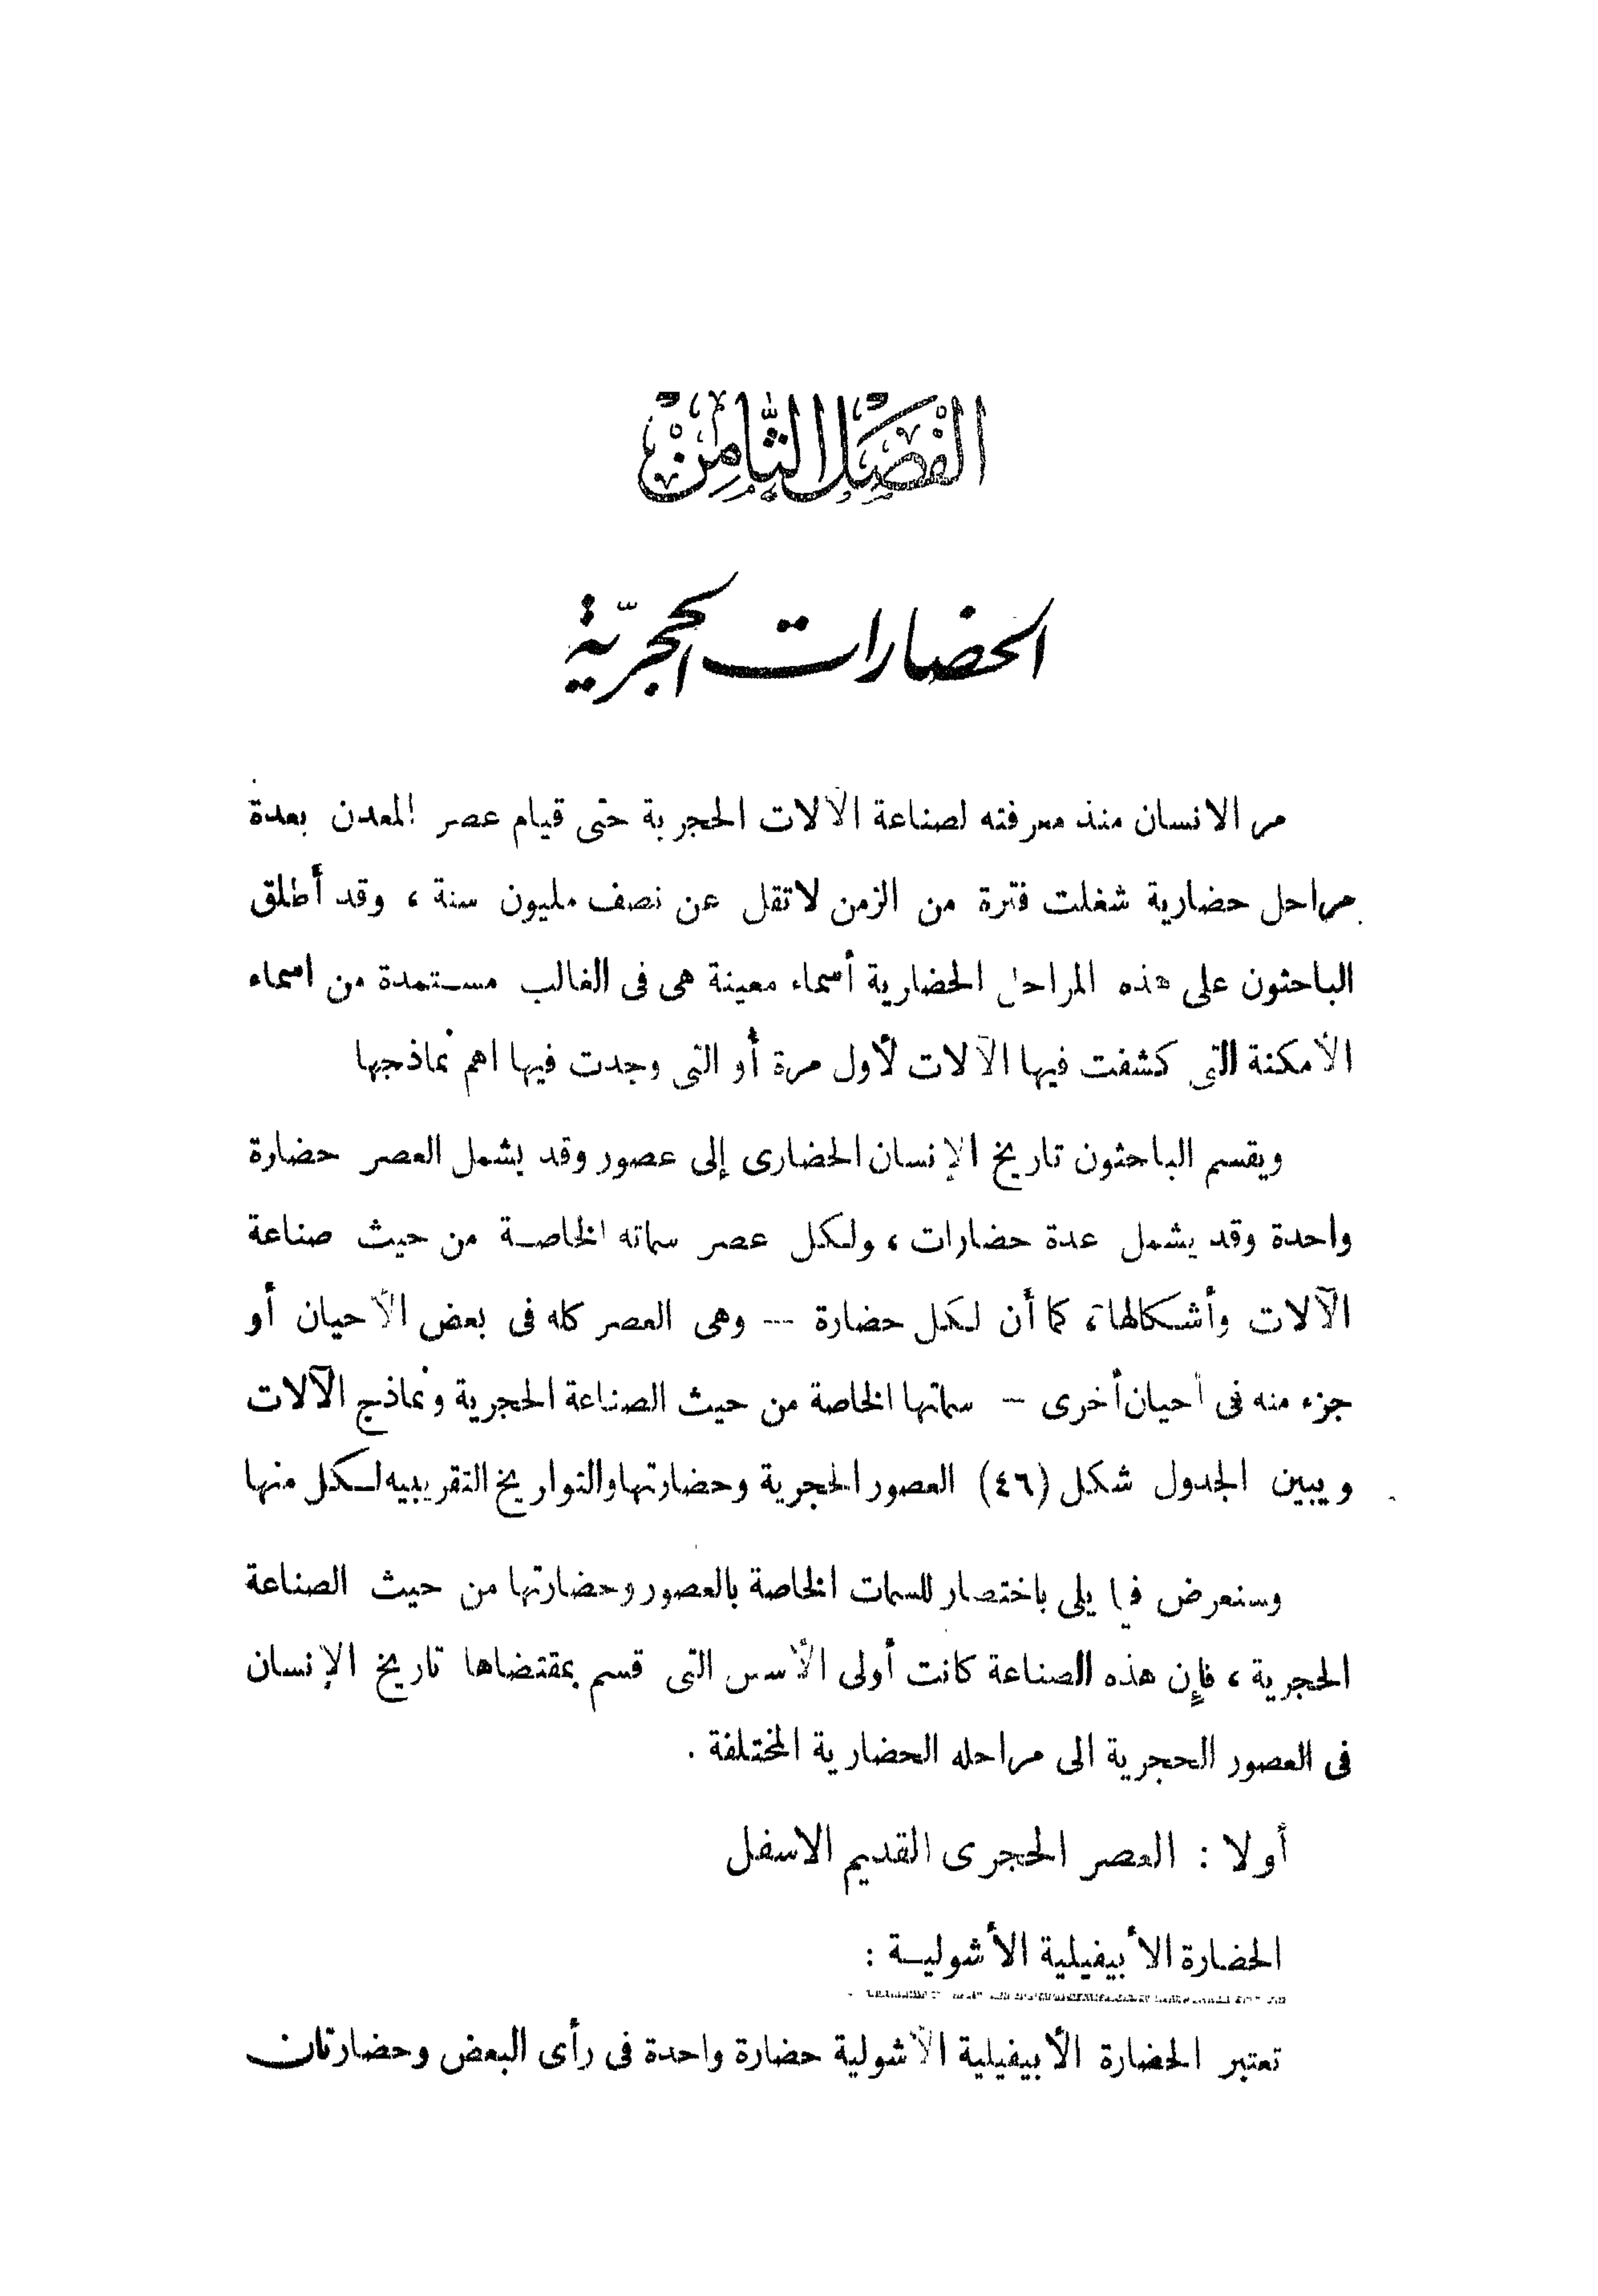 الفصل الثامن
الحضارات الحجريّة
مر الانسان منذ معرفته لصناعة الآلات الحجرية حتى قيام عصر المعدن بعدة
مراحل حضارية شغلت فترة من الزمن لاتقل عن نصف مليون سنة ، وقد أطلق
الباحثون على هذه المراحل الحضارية أسماء معينة هى فى الغالب مستمدة من اسماء
الأمكنة التى كشفت فيها الآلات لأول مرة أو التى وجدت فيها اهم نماذجها
ويقسم الباحثون تاريخ الإنسان الحضارى إلى عصور وقد يشمل العصر حضارة
واحدة وقد يشمل عدة حضارات ، ولكل عصر سماته الخاصة من حيث صناعة
الآلات وأشكالها ، كما أن لكل حضارة -- وهى العصر كله فى بعض الأحيان أو
جزء منه فى أحيان أخرى -- سماتها الخاصة من حيث الصناعة الحجرية ونماذج الآلات
ويبين الجدول شكل (٤٦) العصور الحجرية وحضارتها والتواريخ التقريبيه لكل منها
وسنعرض فيما يلى باختصار للسمات الخاصة بالعصور وحضارتها من حيث الصناعة
الحجرية ، فإن هذه الصناعة كانت أولى الأسس التى قسم بمقتضاها تاريخ الإنسان
فى العصور الحجرية الى مراحله الحضارية المختلفة .
أولا : العصر الحجرى القديم الاسفل
الحضارة الأبيفيلية الأشولية :
تعتبر الحضارة الأبيفيلية الأشولية حضارة واحدة فى رأى البعض وحضارتان